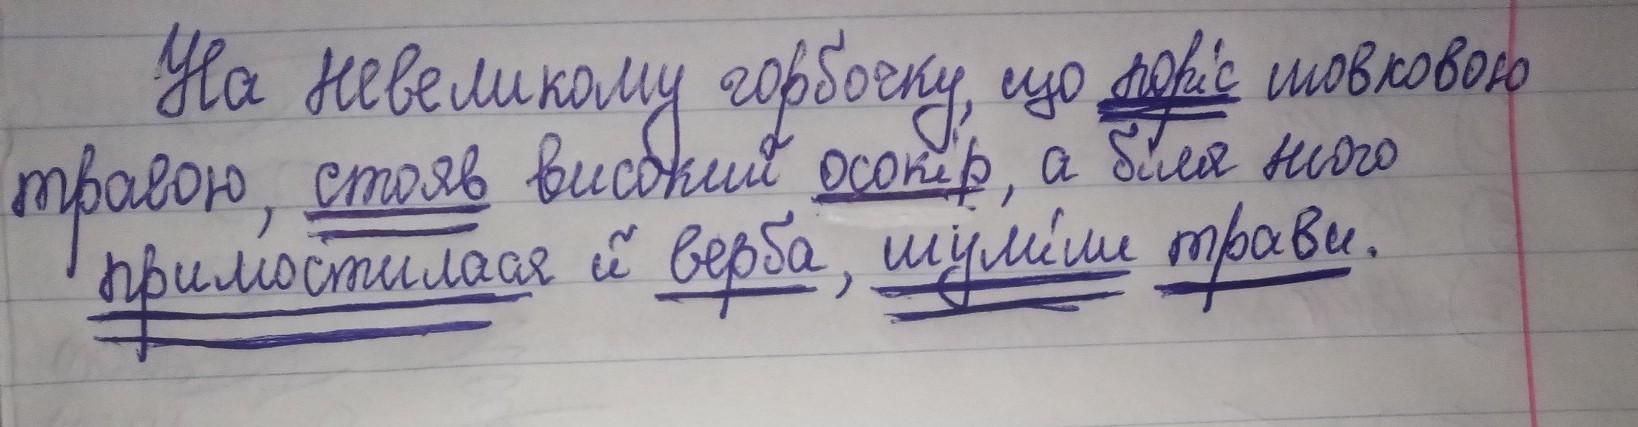 На невеликому горбочку, що поріс шовковою
травою, стояв високий осокір, а біля нього
примостилася й верба, шуміли трави.